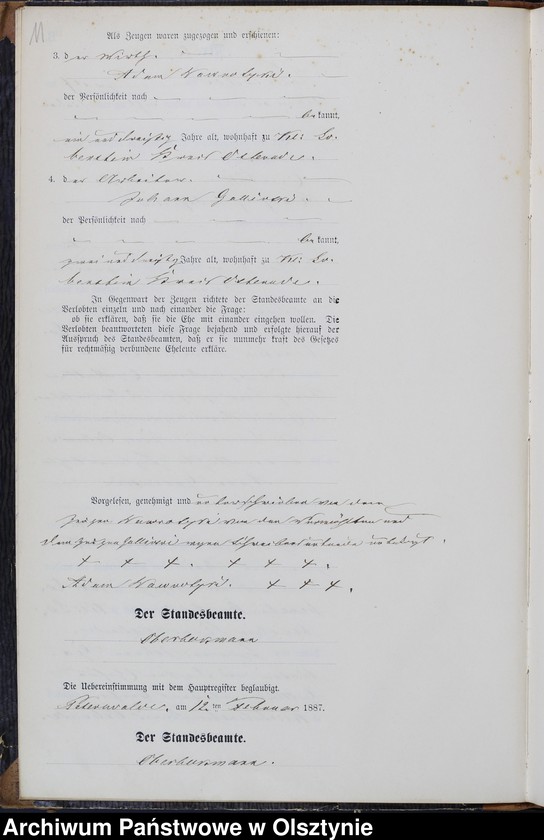 11
Als Zeugen waren zugezogen und erschienen:
3. der Wirth
Adam Nawrotzki.
der Persönlichkeit nach
bekannt,
ein und dreißig Jahre alt, wohnhaft zu Kl: Lo-
benstein Kreis Osterode.
4. der Arbeiter
Johann Gollinski
der Persönlichkeit nach
bekannt,
zwei und dreißig Jahre alt, wohnhaft zu Kl: Lo-
benstein Kreis Osterode.
In Gegenwart der Zeugen richtete der Standesbeamte an die
Verlobten einzeln und nach einander die Frage:
ob sie erklären, daß sie die Ehe mit einander eingehen wollen. Die
Verlobten beantworteten diese Frage bejahend und erfolgte hierauf der
Ausspruch des Standesbeamten, daß er sie nunmehr kraft des Gesetzes
für rechtmäßig verbundene Eheleute erkläre.
Vorgelesen, genehmigt und unterschrieben von dem
Zeugen Nawrotzki von den Vermählten und
dem Zeugen Gollinski wegen Schreibensunkunde unterkreuzt.
+ + +. + + +.
Adam Nawrotzki. + + +.
Der Standesbeamte.
Die Uebereinstimmung mit dem Hauptregister beglaubigt.
Peterswalde, am 12ten Februar 1887.
Der Standesbeamte.
Archiwum Państwowe w Olsztynie